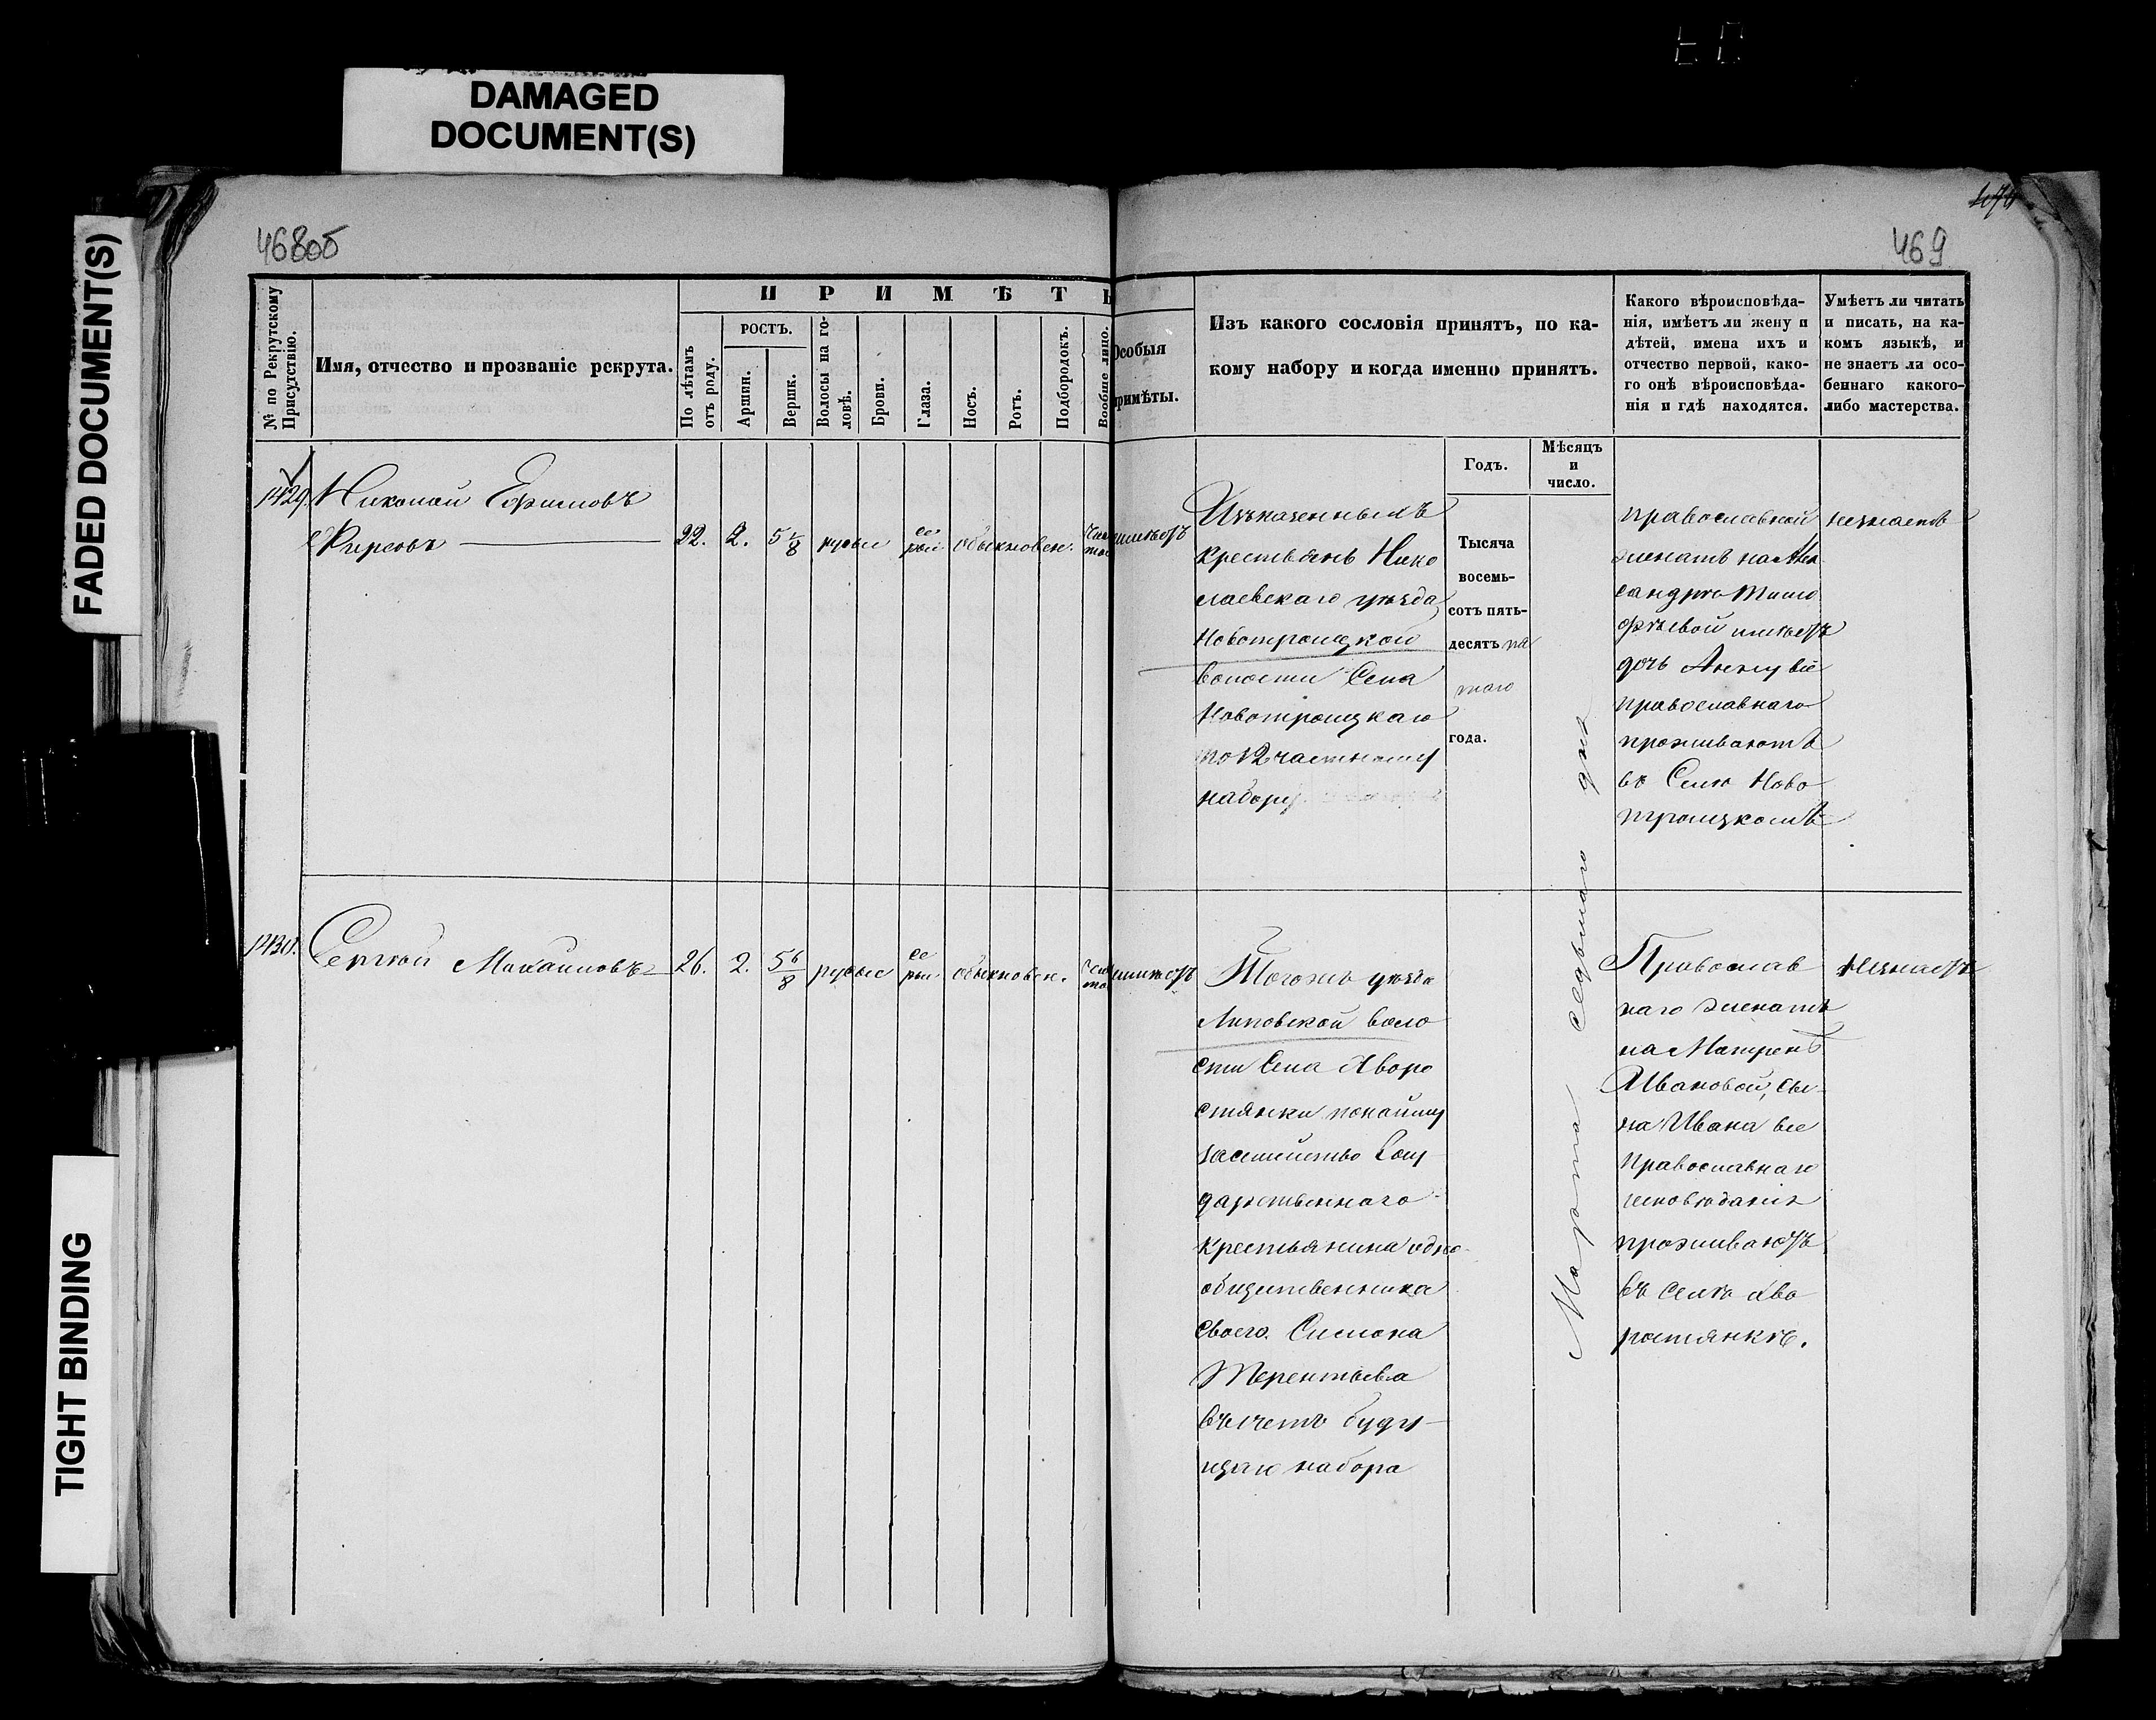 DAMAGED
DOCUMENT(S)
FADED DOCUMENT(S)
TIGHT BINDING
468об
469
№ по Рекрутскому
Присутствію.
Имя, отчество и прозваніе рекрута.
ПРИМѢТЫ
По лѣтамъ
отъ роду.
РОСТЪ.
Аршин.
Вершк.
Волосы на го-
ловѣ.
Брови.
Глаза.
Носъ.
Ротъ.
Подбородокъ.
Вообще лицо.
Особыя
примѣты.
Изъ какого сословія принятъ, по ка-
кому набору и когда именно принятъ.
Какого вѣроисповѣда-
нія, имѣетъ ли жену и
дѣтей, имена ихъ и
отчество первой, како-
го онѣ вѣроисповѣда-
нія и гдѣ находятся.
Умѣетъ ли читать
и писать, на ка-
комъ языкѣ, и
не знаетъ ли осо-
беннаго какого-
либо мастерства.
Годъ.
Мѣсяцъ
и
число.
1429.
Николай Ефимовъ
Фирсовъ
22. 2. 5 1/8 русые
се
рые
обыкновен.
чис
тое
неимѣетъ
Изъказенныхъ
крестьянъ Нико
лаевскаго уѣзда
Новотроицкой
волости Села
Новотроицкаго
по 12 частному
набору
Тысяча
восемь-
сотъ пять-
десятъ пя
таго
года.
Марта седьмаго дня
православной
женатъ на Алек
сандрѣ Тимо
фѣевой имѣетъ
дочь Анну все
православнаго
проживаютъ
въ Селѣ Ново
троицкомъ
незнаетъ
1430.
Сергѣй Михайловъ
26. 2. 5 6/8 русые
се
рые
обыкновен.
чис
тое
неимѣетъ
Тогожъ уѣзда
Липовской воло
сти Села Хворо
стянки понайму
засемейство Госу
дарственнаго
крестьянина одно
общественника
своего Симона
Терентьева
въ счетъ буду-
щаго набора
Православ
наго женатъ
на Матренѣ
Ивановой, сы-
на Ивана все
Православнаго
исповѣданія
проживаютъ
въ селѣ Хво
ростянкѣ.
незнаетъ